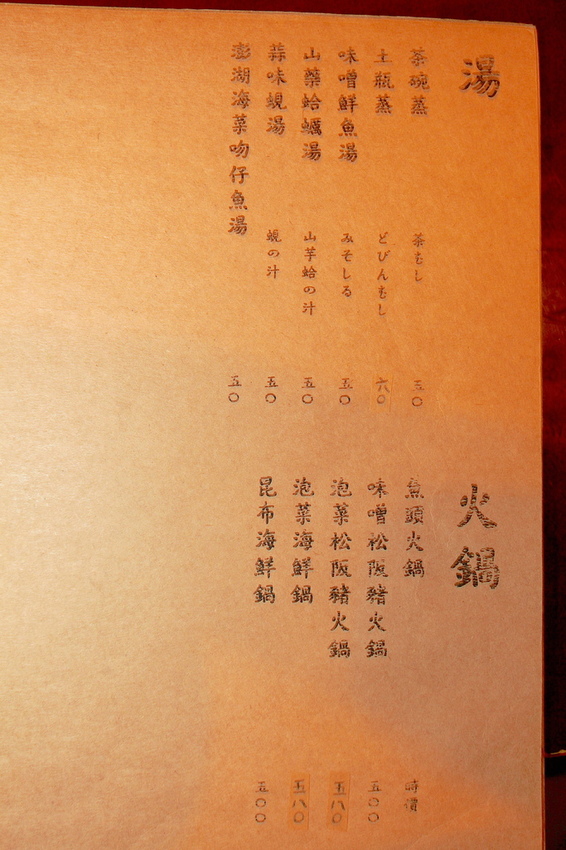 湯
茶碗蒸 茶むし 五〇
土瓶蒸 どびんむし 六〇
味噌鮮魚湯 みそしる 五〇
山藥蛤蠣湯 山芋蛤の汁 五〇
蒜味蜆湯 蜆の汁 五〇
澎湖海菜吻仔魚湯 五〇
火鍋
魚頭火鍋 時價
味噌松阪豬火鍋 五〇〇
泡菜松阪豬火鍋 五八〇
泡菜海鮮鍋 五八〇
昆布海鮮鍋 五〇〇